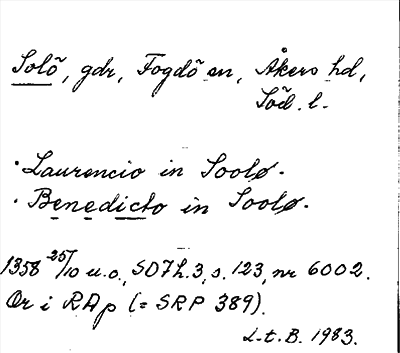 Solö, gdr, Fogdö sn, Åkers hd,
Söd. l.
Laurencio in Soolø.
Benedicto in Soolø.
1358 25/10 u.o., SD7h.3, s. 123, nr 6002.
Or i RAp (= SRP 389).
L.t.B. 1983.